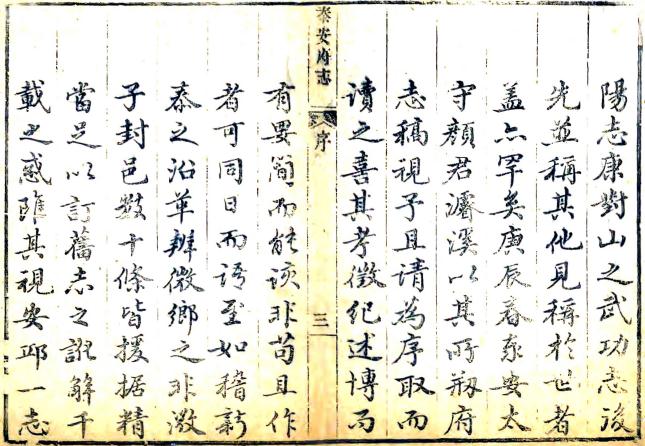 陽志康對山之武功志後
先並稱其他見稱於世者
蓋亦罕矣庚辰春泰安太
守顏君濬溪以其所刱府
志稿視予且請為序取而
讀之喜其考徵紀述博而
泰安府志
序
三
有要簡而能該非苟且作
者可同日而語至如稽新
泰之沿革辨微鄉之非微
子封邑數十條皆援據精
當足以訂舊志之解千
載之惑雖其視安邱一志